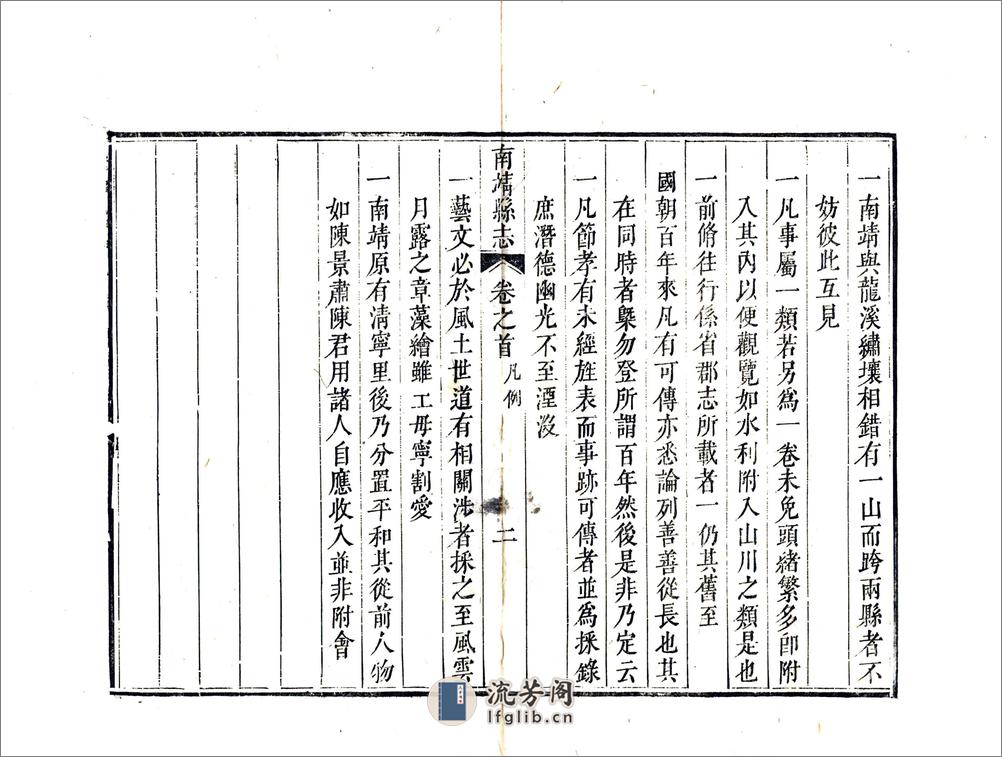 一南靖與龍溪繡壤相錯有一山而跨兩縣者不
妨彼此互見
一凡事屬一類若另爲一卷未免頭緒繁多卽附
入其內以便觀覽如水利附入山川之類是也
一前脩往行係省郡志所載者一仍其舊至
國朝百年來凡有可傳亦悉論列善善從長也其
在同時者槩勿登所謂百年然後是非乃定云
一凡節孝有未經旌表而事跡可傳者並爲採錄
庶潛德幽光不至湮沒
南靖縣志 卷之首 凡例 二
一藝文必於風土世道有相關涉者採之至風雲
月露之章藻繪雖工毋寧割愛
一南靖原有清寧里後乃分置平和其從前人物
如陳景肅陳君用諸人自應收入並非附會
流芳阁
lfglib.cn